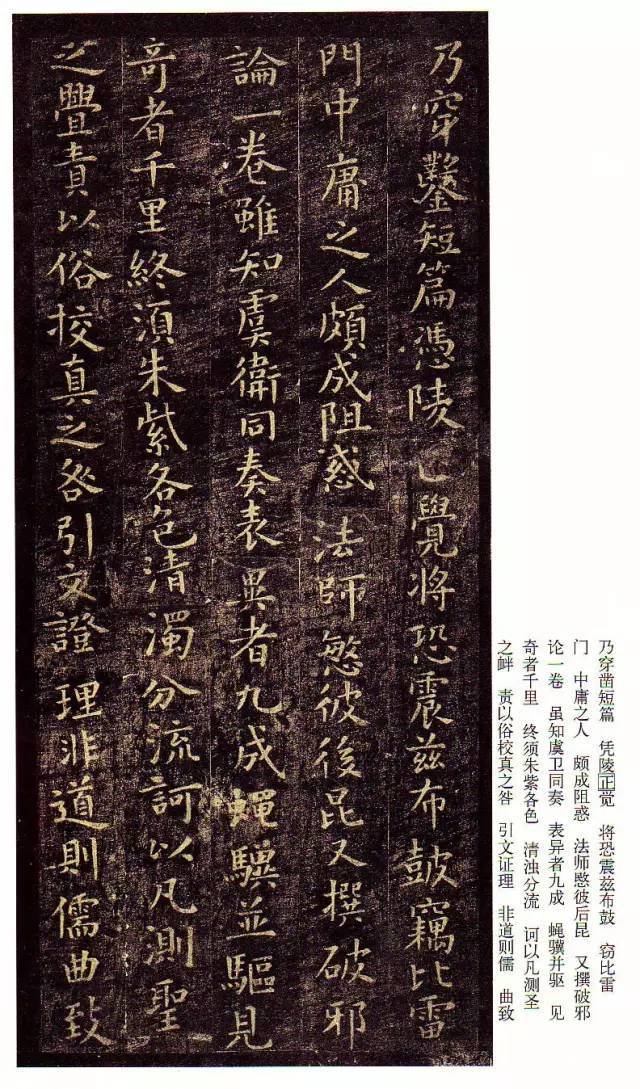 乃穿鑿短篇憑陵覺將恐震兹布皷竊比雷
門中庸之人頗成阻惑法師慜彼後昆又撰破邪
論一卷雖知虞衛同奏表異者九成蠅驥並驅見
竒者千里終湏朱紫各色清濁分流訶以凡測聖
之亹責以俗挍真之咎引文證理非道則儒曲致
乃穿凿短篇 凭陵正觉 将恐震兹布鼓 窃比雷
门 中庸之人 颇成阻惑 法师愍彼后昆 又撰破邪
论一卷 虽知虞卫同奏 表异者九成 蝇骥并驱 见
奇者千里 终须朱紫各色 清浊分流 诃以凡测圣
之衅 责以俗校真之咎 引文证理 非道则儒 曲致